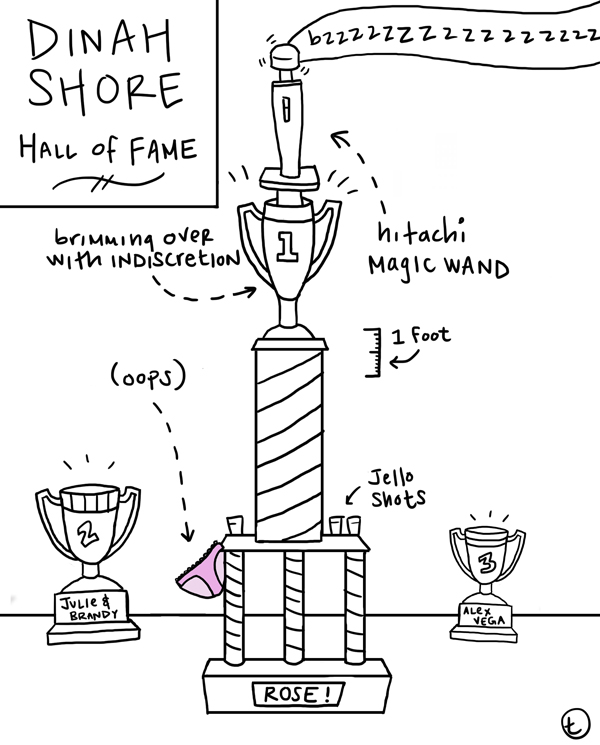 DINAH
SHORE
HALL of FAME
bzzzzzzzzzzzzzzzzz
hitachi
MAGIC WAND
brimming over
with INDISCRETION
1
1 foot
(oops)
Jello
Shots
2
JULIE &
BRANDY
3
ALEX
VEGA
ROSE!
t